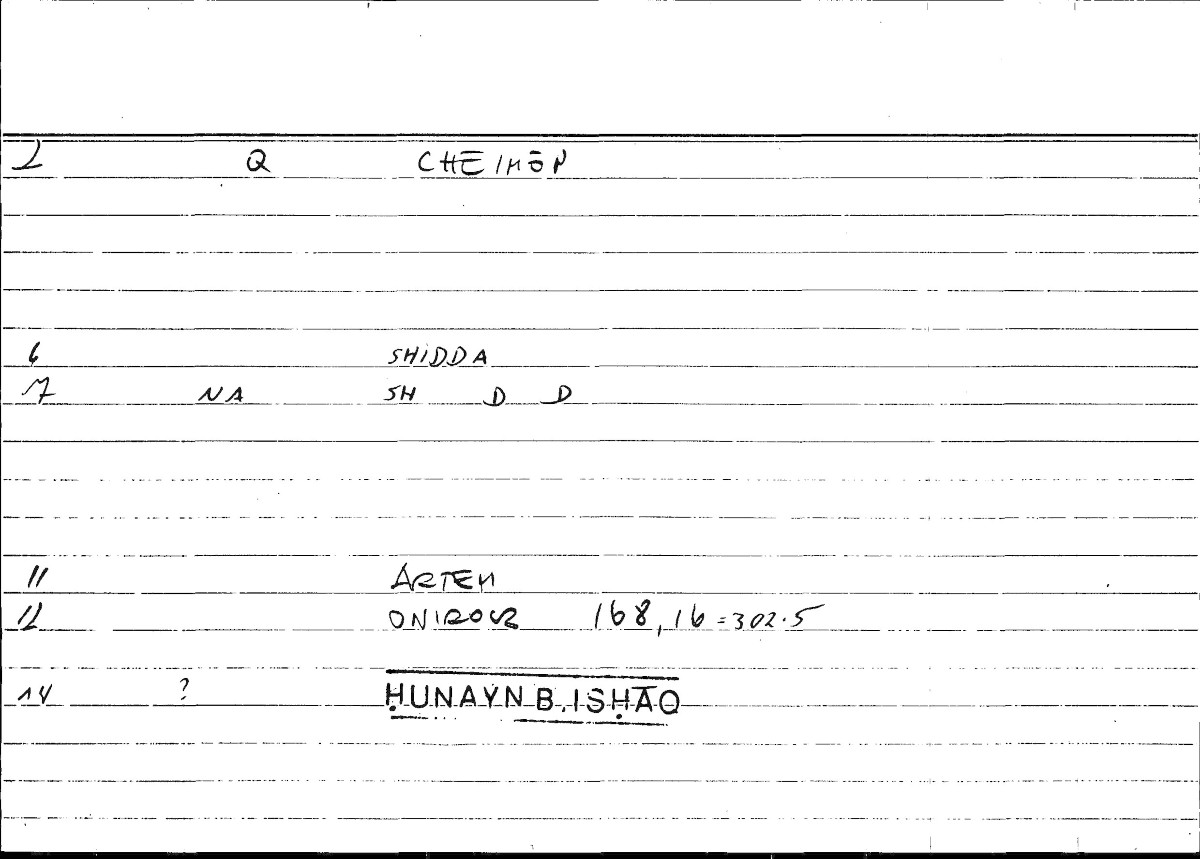 2 Q CHĒIMŌN
6 SHIDDA
7 NA SH D D
11 ARTEM
12 ONIROCR 168,16 = 302.5
14 ? ḤUNAYN B. ISḤĀQ